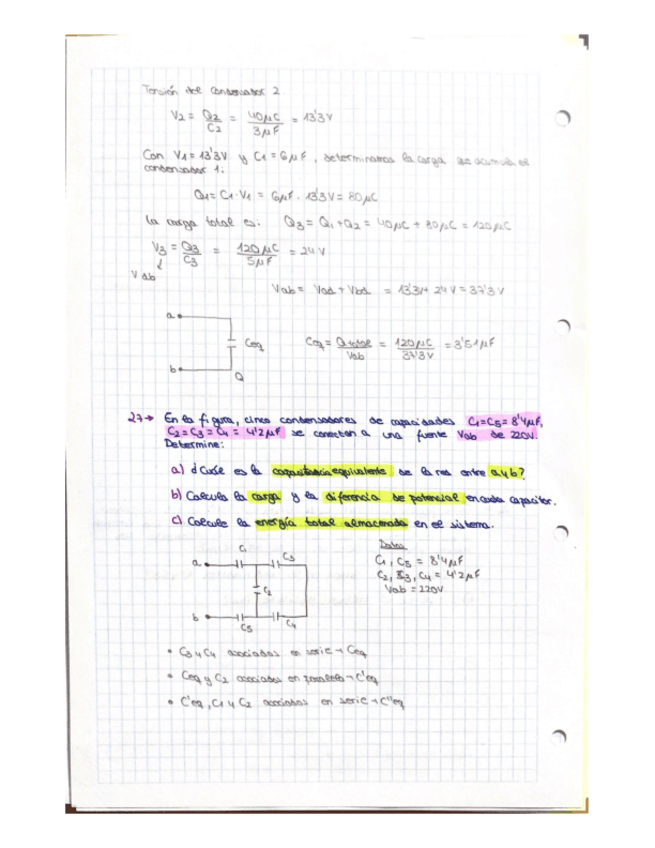 Tensión del condensador 2
V2 = Q2/C2 = 40μC/3μF = 13'3V
Con V1 = 13'3V y C1 = 6μF, determinamos la carga que acumula el
condensador 1:
Q1 = C1·V1 = 6μF · 13'3V = 80μC
La carga total es: Q3 = Q1 + Q2 = 40μC + 80μC = 120μC
V3 = Q3/C3 = 120μC/5μF = 24V
Vab = Vad + Vbd = 13'3V + 24V = 37'3V
a
Ceq
b
Q
Ceq = Q total/Vab = 120μC/37'3V = 3'51μF
27→ En la figura, cinco condensadores de capacidades C1=C5=8'4μF,
C2=C3=C4=4'2μF se conectan a una fuente Vab de 220V.
Determine:
a) ¿Cuál es la capacitancia equivalente de la red entre a y b?
b) Calcula la carga y la diferencia de potencial en cada capacitor.
c) Calcule la energía total almacenada en el sistema.
Datos
C1, C5 = 8'4μF
C2, C3, C4 = 4'2μF
Vab = 220V
a
C1
C3
C2
b
C5
C4
• C3 y C4 asociados en serie → Ceq
• Ceq y C2 asociados en paralelo → C'eq
• C'eq, C1 y C2 asociados en serie → C''eq